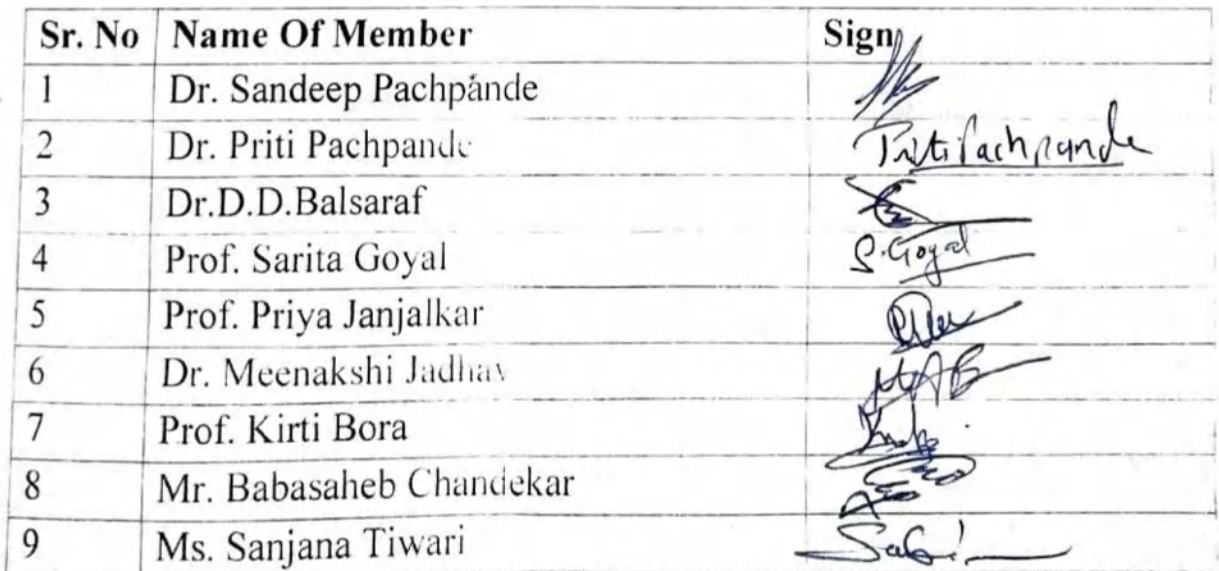 Sr. No Name Of Member Sign
1 Dr. Sandeep Pachpande
2 Dr. Priti Pachpande Priti Pachpande
3 Dr.D.D.Balsaraf
4 Prof. Sarita Goyal S.Goyal
5 Prof. Priya Janjalkar
6 Dr. Meenakshi Jadhav
7 Prof. Kirti Bora
8 Mr. Babasaheb Chandekar
9 Ms. Sanjana Tiwari